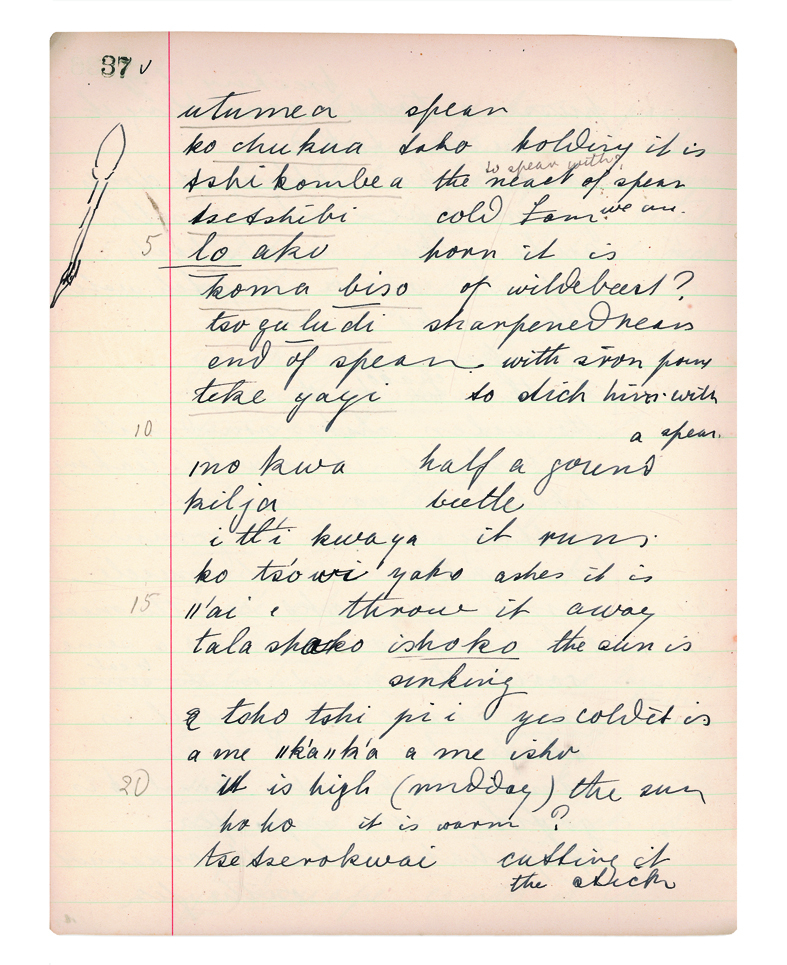 37 v
utumea spear
ko chukua toho holding it is
to spear with?
tshikombea the neack of spear
tsetshibi cold I am? we are.
5 lo ako horn it is
koma biso of wildebeest?
tsogaludi sharpened
end of spear. with iron
teke yayi to stick him with
10 a spear.
mo kwa half a gourd
kilja beetle
i tl'i kwaya it runs.
ko tsówi yako ashes it is
15 ǁ'ai e throw it away
tala ishoko the sun is
sinking
e tsho tshi pi i yes cold it is
a me ǁk'aǁk'a a me isho
20 it is high (midday) the sun
ho ho it is warm?
tsetserokwai cutting it
the stick